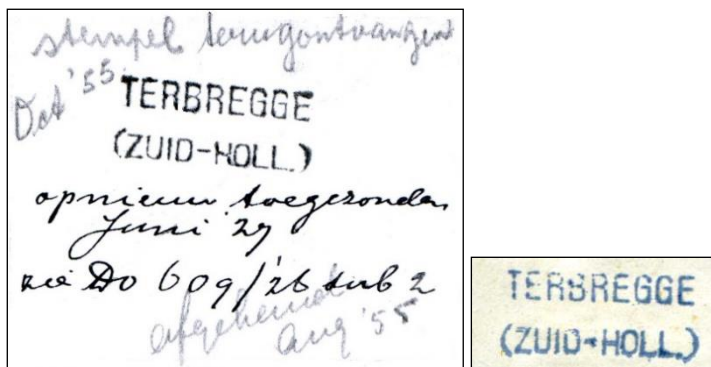 stempel terugontvangen
Oct '55
TERBREGGE
(ZUID-HOLL.)
opnieuw toegezonden
Juni 29
zie Do 609/'26 sub 2
Aug '55
TERBREGGE
(ZUID-HOLL.)